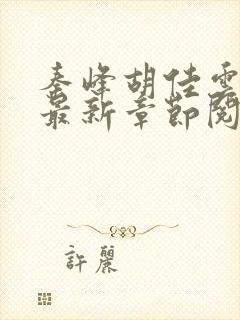 秦峰胡佳雲
最新章節閱
許麗